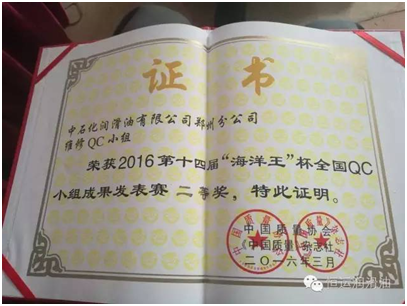 证书
中石化润滑油有限公司郑州分公司
维修QC小组
荣获2016第十四届“海洋王”杯全国QC
小组成果发表赛 二等奖，特此证明。
中国质量协会
《中国质量》杂志社
二〇一六年三月